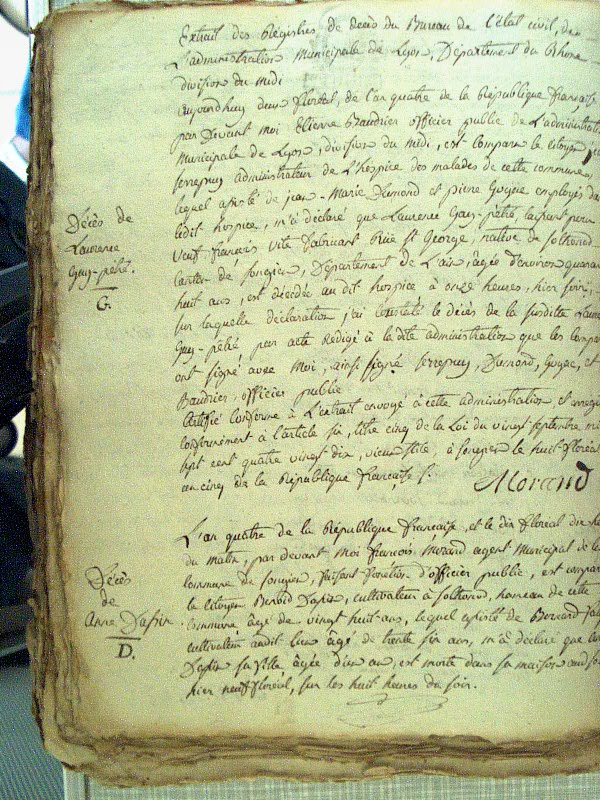 Extrait des Régistres de décès du Bureau de l'état civil, de
L'administration Municipale de Lyon, Département du Rhone
division du midi
aujourd'huy deux floréal, de l'an quatre de la République française
par Devant moi Etienne Baudrier officier public de L'administrati
Municipale de Lyon, division du midi, est comparu le citoyen
serrepuy administrateur de L'hospice des malades de cette commune,
lequel assisté de jean-Marie Dumond et pierre Goyée employés da
ledit hospice, m'a déclaré que Laurence Guy-pélié,
veuf francois vite fabricant Rüe St George, native de
canton de songieu, Département de L'ain, âgée d'environ quaran
huit ans, est décédée audit hospice à onze heures, hier
sur laquelle déclaration j'ai constaté le décès de la susdite
Guy-pélié, par acte Rédigé à la dite administration que les compar
ont signé avec Moi, ainsi signé serrepuy, Dumond, Goyée, et
Baudrier, officier public
Certifié conforme à L'extrait envoyé à cette administration et
conformément à l'article six, titre cinq de la Loi du vingt septembre mil
sept cent quatre vingt dix, vieux stile, à songieu le huit floréal
an cinq de la République française
Morand
L'an quatre de la République francaise, et le dix floréal dix he
du matin, par devant Moi francois Morand agent Municipal de la
commune de songieu, faisant fonction d'officier public, est compar
le citoyen Benoid Dapin, cultivateur à, hameau de cette
commune âgé de vingt huit ans, lequel assisté de Bernard
cultivateur audit lieu âgé de trente six ans, m'a déclaré que
Dapin sa fille âgée d'un an, est morte dans sa maison
hier neuf floréal, sur les huit heures du soir.
Décès de
Laurence
Guy-pélié.
G.
Décès
de
Anne Dapin
D.